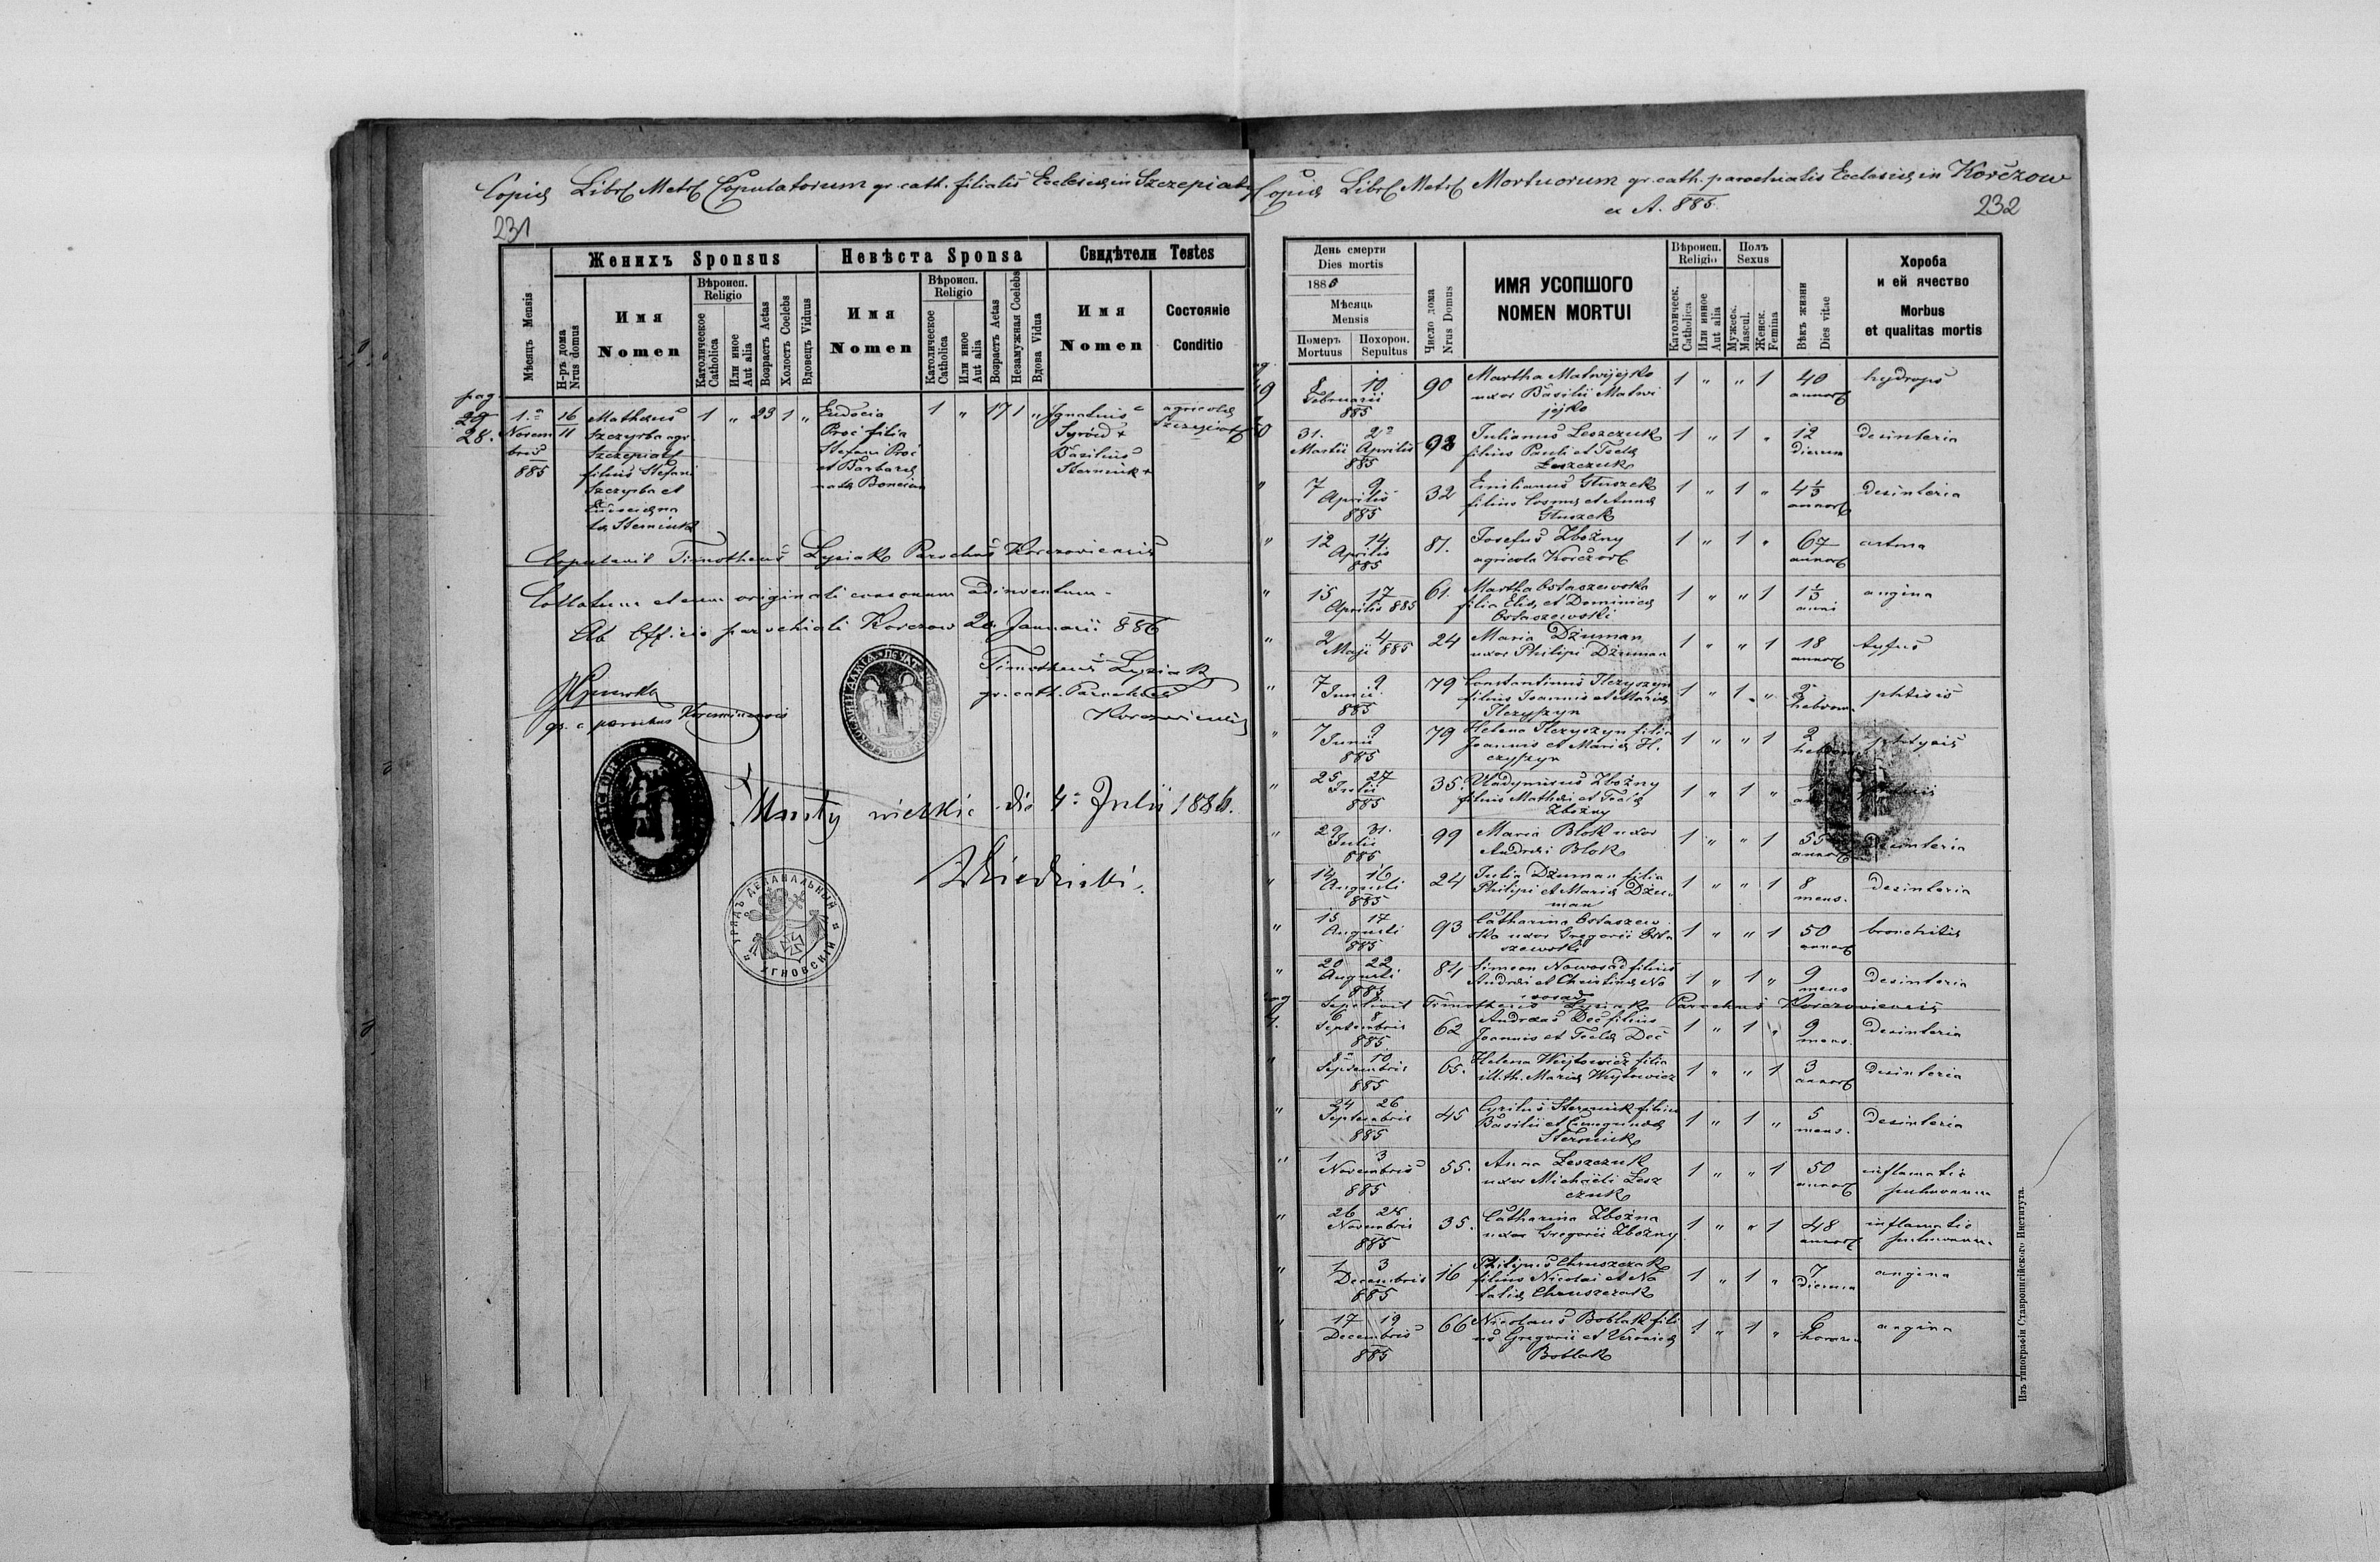 Copia Libri Metr. Copulatorum gr. cath. filialis Ecclesiae in Szczepiatyn
231
Женихъ Sponsus
Невѣста Sponsa
Свидѣтели Testes
Мѣсяцъ Mensis
Н-ръ дома Nrus domus
Имя
Nomen
Вѣроисп.
Religio
Католическое Catholica
Или иное Aut alia
Возрастъ Aetas
Холостъ Coelebs
Вдовецъ Viduus
Имя
Nomen
Вѣроисп.
Religio
Католическое Catholica
Или иное Aut alia
Возрастъ Aetas
Незамужная Coelebs
Вдова Vidua
Имя
Nomen
Состояніе
Conditio
pag.
28.
1.a Novembris 885
16
11
Matheus
Szczyrba agr.
filius Stefani
Szczyrba et
Sterniuk
1 " 23 1 "
Eudocia
Proć filia
Stefani Proć
et Barbara
nata
1 " 17 1 "
Ignatius
Syroid +
Basilius
Sterniuk +
agricola
Copulavit Timotheus Lysiak Parochus Korczoviensis
Collatum et cum originali consonum adinventum.
Ab Officio parochiali Korczow 20 Januarii 886
Timotheus Lysiak
gr. cath. Parochus
Korczoviensis
gr. c. parochus
Mosty wielkie die 4a Julii 1886.
УРЯДЪ ДЕКАНАЛЬНЫЙ
УГНОВСКІЙ
Copia Libri Metr. Mortuorum gr. cath. parochialis Ecclesiae in Korczow
ex A. 885.
232
День смерти
Dies mortis
188
Мѣсяцъ
Mensis
Померъ Mortuus
Похорон. Sepultus
Число дома Nrus Domus
ИМЯ УСОПШОГО
NOMEN MORTUI
Вѣроисп.
Religio
Католическ. Catholica
Или инное Aut alia
Полъ
Sexus
Мужеск. Mascul.
Женск. Femina
Вѣкъ жизни
Dies vitae
Хороба
и ей ячество
Morbus
et qualitas mortis
8 10 Februarii 885 90 Martha Matwijejko 1 " " 1 40 annor. hydrops
uxor Basilii Matwi
jejko
31. Martii 2 Aprilis 885 93 Julianus Leszczuk 1 " 1 " 12 dierum desinteria
filius Pauli et Tecla
Leszczuk
7 9 Aprilis 885 32 Emilianus Głuszek 1 " 1 " 4 1/3 annor. desinteria
filius Cosmae et Anna
Głuszek
12 14 Aprilis 885 81. Josefus Zbożny 1 " 1 " 67 annor. astma
agricola Korczow
15 17 Aprilis 885 61. Martha Ostaszewska 1 " " 1 1 1/3 anni angina
filia Eliae et Dominica
Ostaszewski
2 4 Maji 885 24 Maria Dżuman 1 " " 1 18 annor. tyfus
uxor Philipi Dżuman
7 9 Junii 885 79 Constantinus Hczyszyn 1 " 1 " 2 hebdom. phtisis
filius Joannis et Maria
7 9 Junii 885 79 Helena Hczyszyn filia 1 " " 1 2 hebdom.
Joannis et Maria H.
czyszyn
25 27 Julii 885 35. Wladymirus Zbożny 1 " 1 "
filius Mathei et Tecla
Zbożny
29 31. Julii 885 99 Maria Blok uxor 1 " " 1 55 annor. desinteria
Andrei Blok
14 16 Augusti 885 24 Julia Dżuman filia 1 " " 1 8 mens. desinteria
Philipi et Maria Dżu
man
15 17 Augusti 885 93 Catharina Ostaszew 1 " " 1 50 annor. bronchitis
ska uxor Gregorii Osta
szewski
20 22 Augusti 885 84 Simeon Nowosad filius 1 " 1 " 9 mens desinteria
Andrei et Christina No
wosad
Sepelivit Timotheus Lysiak Parochus Korczoviensis
6 8 Septembris 885 62 Andreas Doć filius 1 " 1 " 9 mens. desinteria
Joannis et Tecla Doć
8 10 Septembris 885 65. Helena Wujtowicz filia 1 " " 1 3 annor. desinteria
ill. th. Maria Wujtowicz
24 26 Septembris 885 45 Cyrilus Sterniuk filius 1 " 1 " 5 mens. desinteria
Basilii et Cunegunda
Sterniuk
1 3 Novembris 885 55. Anna Leszczuk 1 " " 1 50 annor. inflamatio pulmonum
uxor Michaeli Lesz
czuk
26 28 Novembris 885 35. Catharina Zbożna 1 " " 1 48 annor. inflamatio pulmonum
uxor Gregorii Zbożny
1 3 Decembris 885 16 Philipus Chruszczak 1 " 1 " 7 dierum angina
filius Nicolai et Na
talia Chruszczak
17 19 Decembris 885 66 Nicolaus Boblak fili 1 " 1 " 6 horarum angina
us Gregorii et Veronica
Boblak
Изъ типографіи Ставропигійского Института.